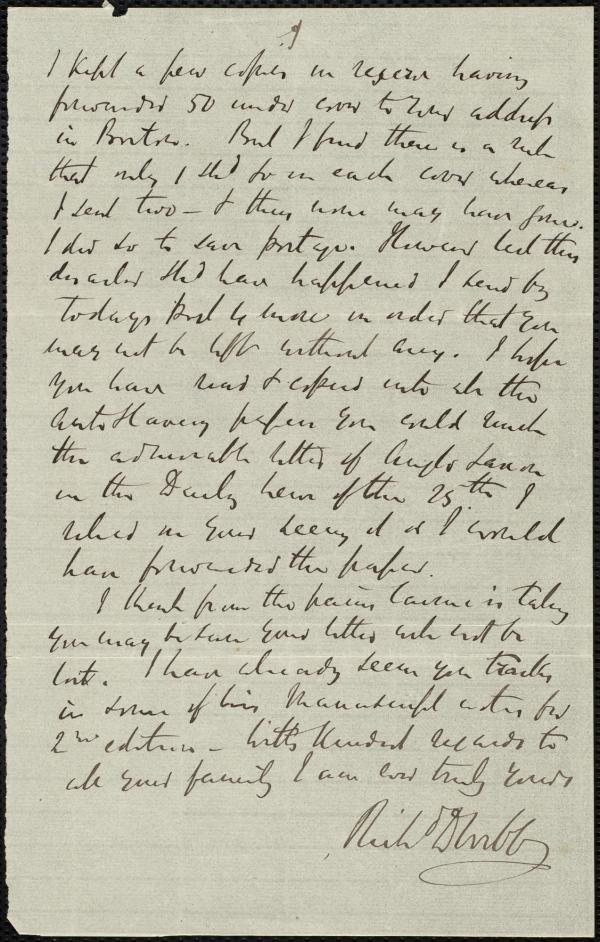 9
I kept a few copies in reserve having
forwarded 50 under cover to your address
in Boston. But I find there is a rule
that only 1 shd go in each cover whereas
I sent two – & thus none may have gone.
I did so to save postage. However lest this
disaster shd have happened I send by
todays Post 4 more in order that you
may not be left without any. I hope
you have read & copied into all the
AntiSlavery papers you could reach
the admirable letter of Anglo Saxon
in the Daily News of the 25th I
relied on your seeing it or I would
have forwarded the paper.
I think from the pains Cairnes is taking
you may be sure your letter will not be
lost. I have already seen your tracks
in some of his Manuscript notes for
2nd edition – With kindest regards to
all your family I am ever truly yours
Richd D Webb